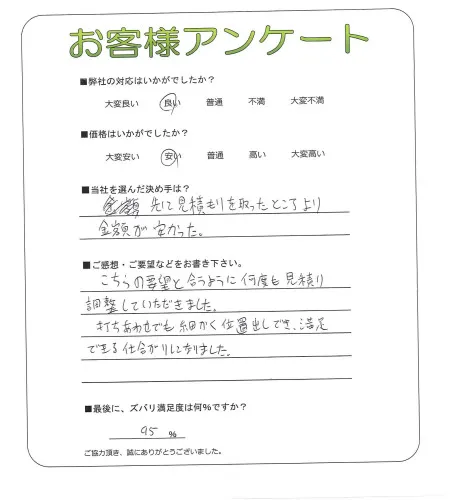 お客様アンケート
■弊社の対応はいかがでしたか？
大変良い 良い 普通 不満 大変不満
■価格はいかがでしたか？
大変安い 安い 普通 高い 大変高い
■当社を選んだ決め手は？
先に見積もりを取ったところより
金額が安かった。
■ご感想・ご要望などをお書き下さい。
こちらの要望と合うように何度も見積り
調整していただきました。
打ちあわせでも細かく位置出しでき、満足
できる仕上がりになりました。
■最後に、ズバリ満足度は何％ですか？
95 %
ご協力頂き、誠にありがとうございました。